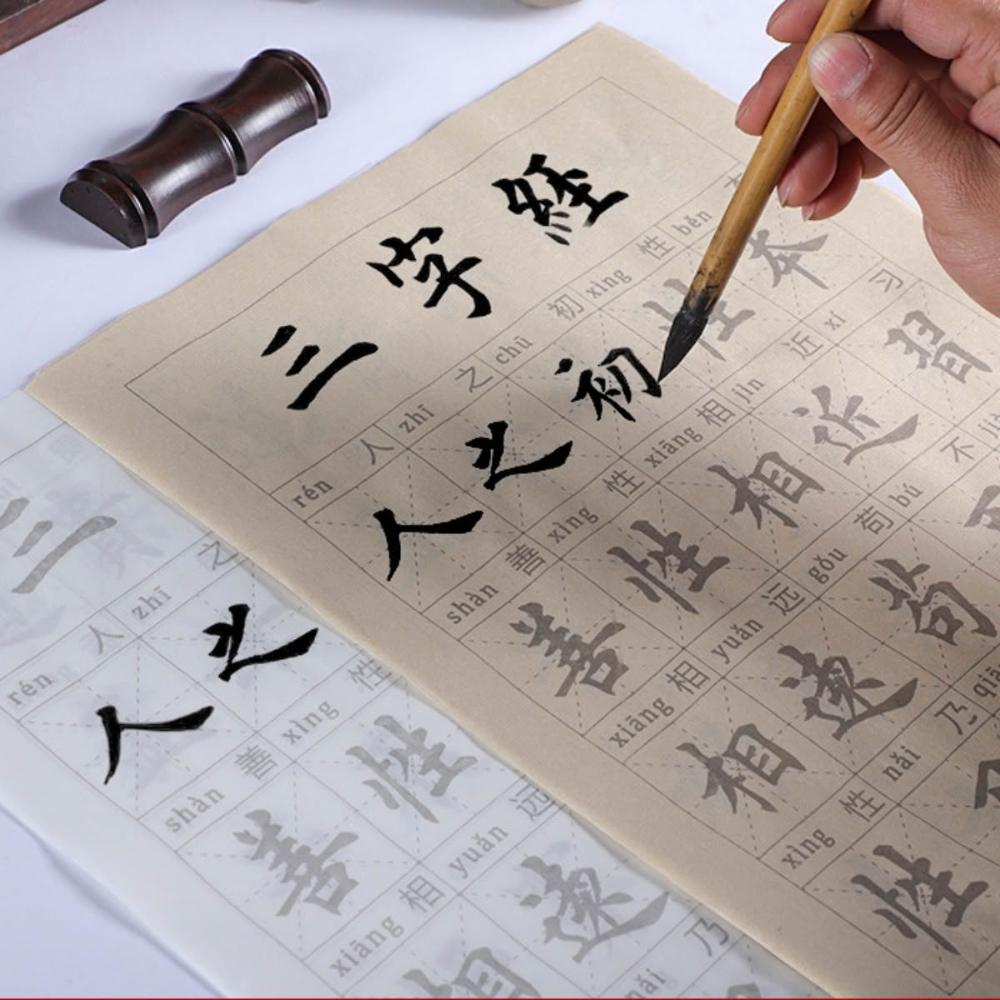 三字経
rén 人 zhī 之 chū 初 xìng 性 běn 本
人之初性本
shàn 善 xìng 性 xiāng 相 jìn 近 xí 习
善性相近習
xiāng 相 yuǎn 远 gǒu 苟 bú 不
相遠苟不
xìng 性 nǎi 乃
性
三
rén 人 zhī 之
人之
shàn 善 xìng 性
善性
xiāng 相 yuǎn 远
相遠
nǎi 乃